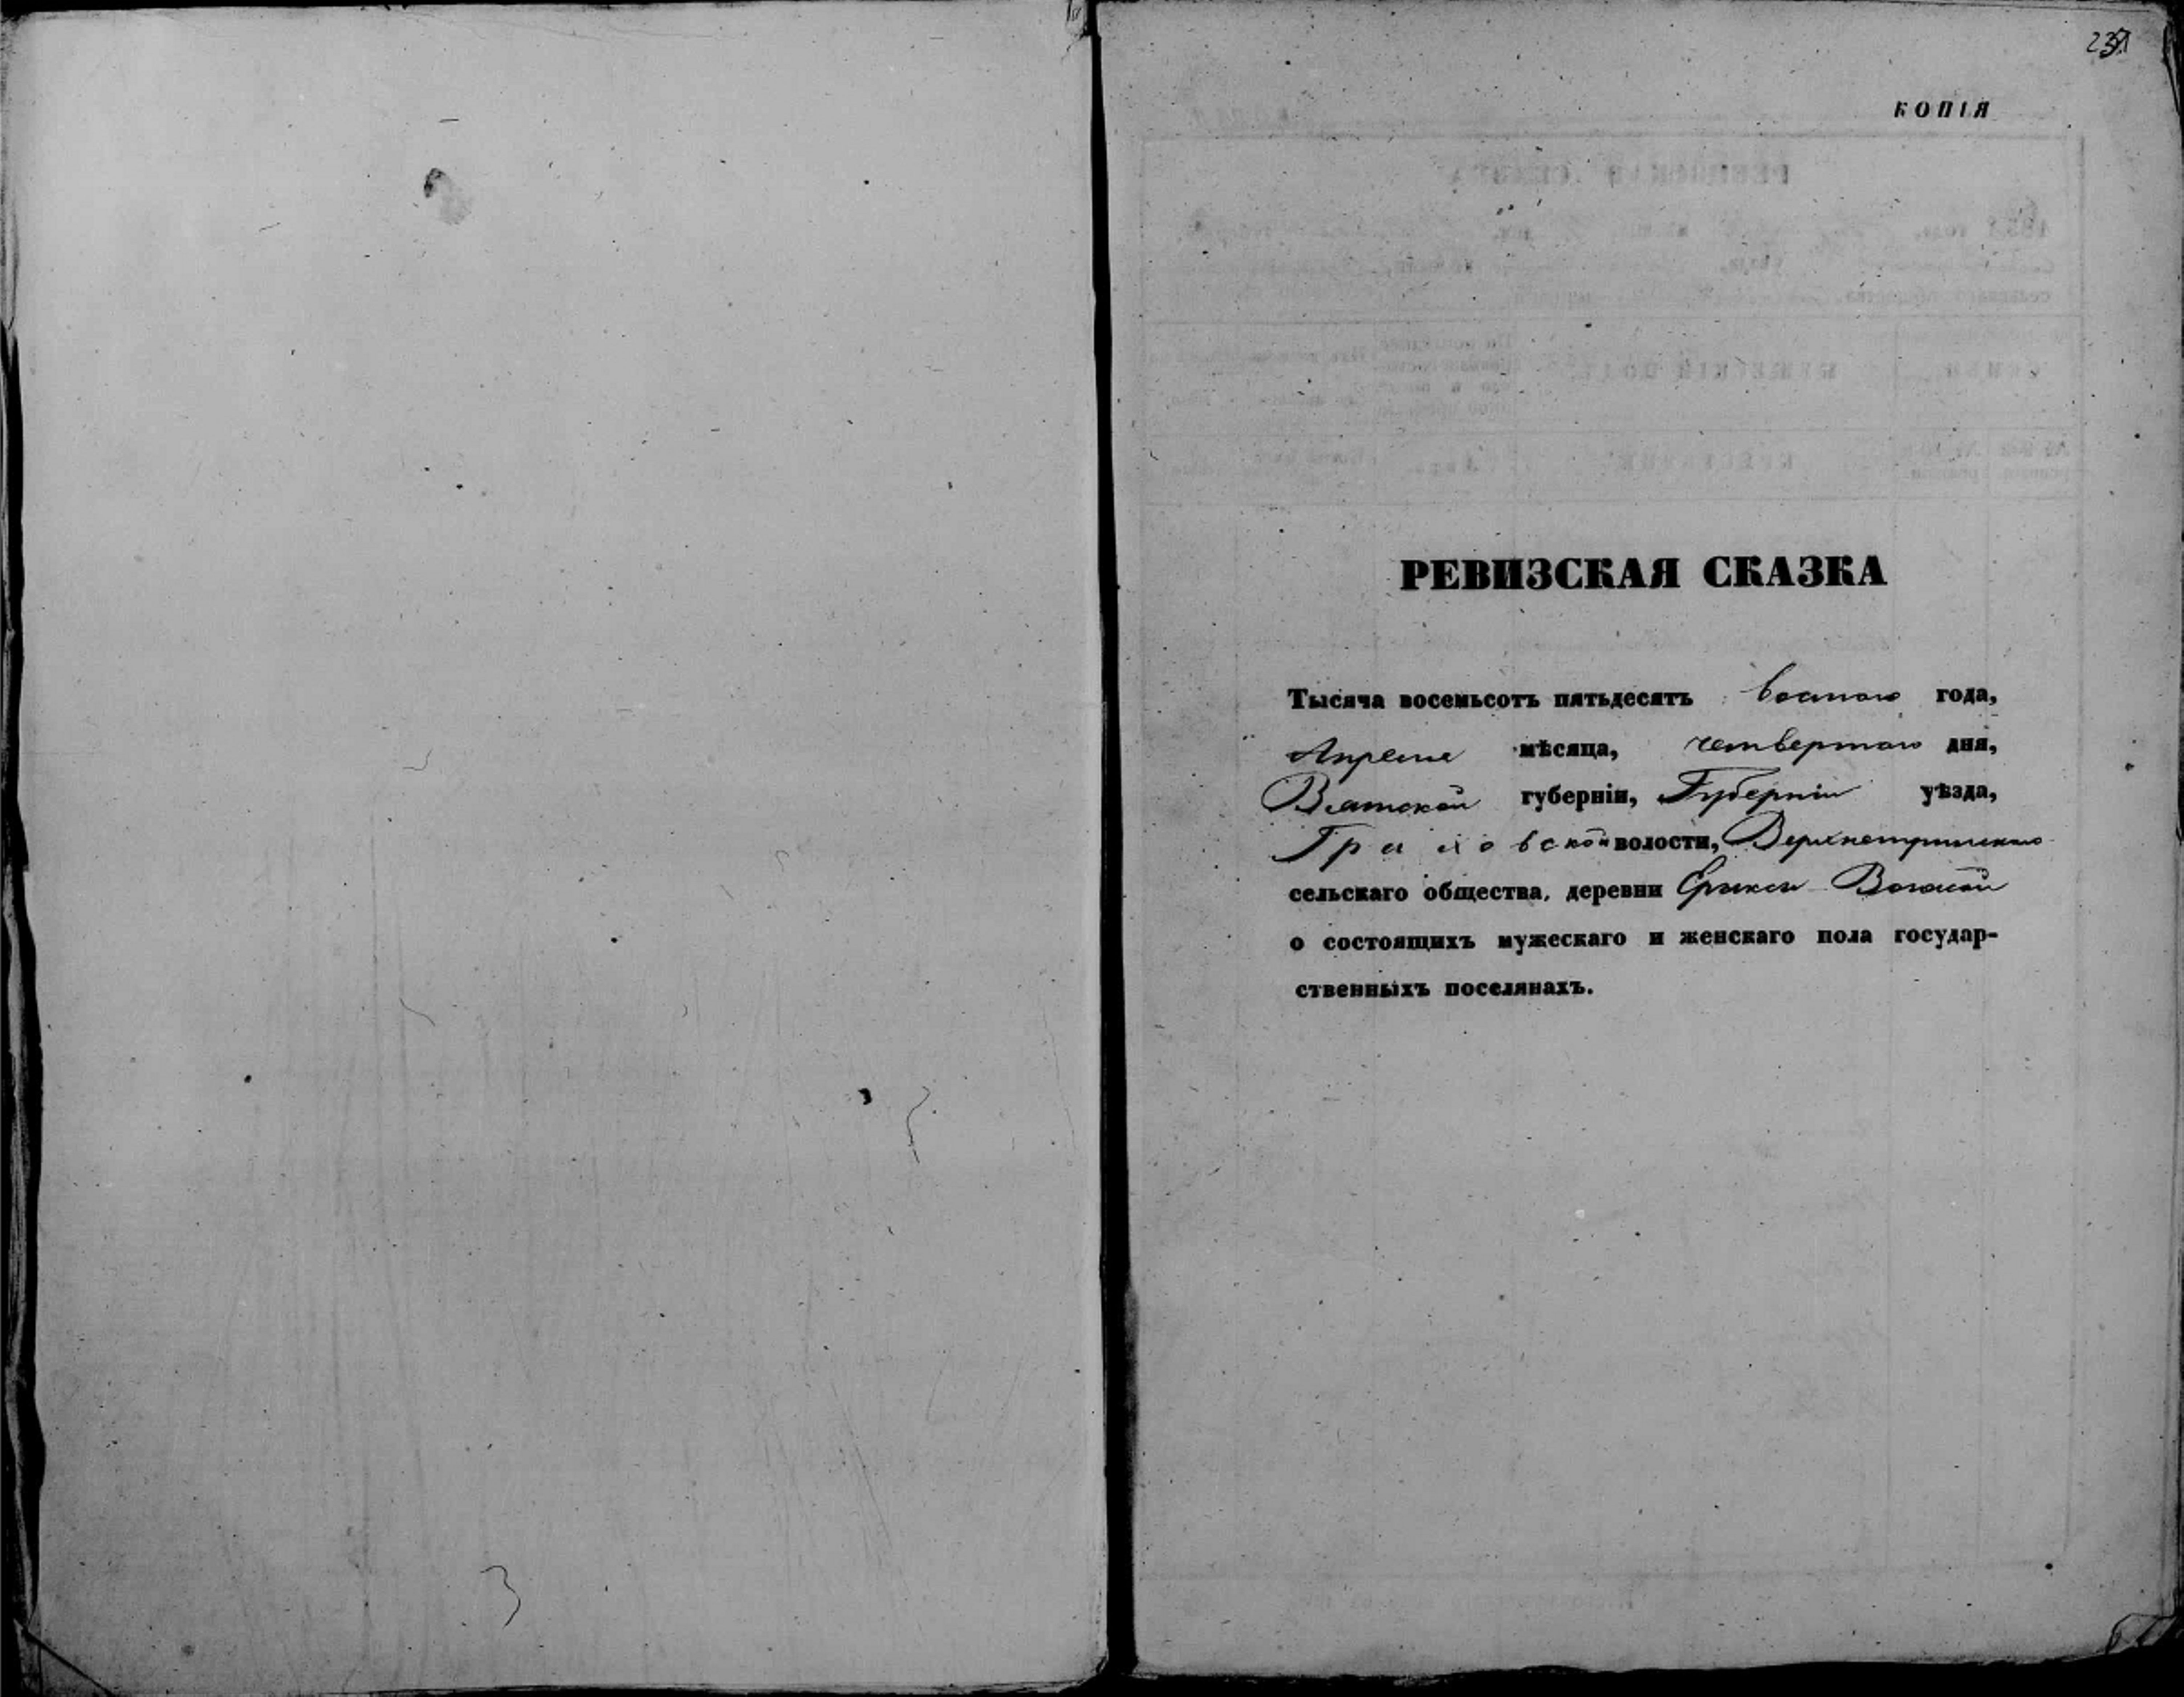 КОПІЯ
РЕВИЗСКАЯ СКАЗКА
Тысяча восемьсотъ пятьдесятъ восмаго года,
Апреля мѣсяца, четвертаго дня,
Вятской губерніи, уѣзда,
Граховской волости,
сельскаго общества, деревни
о состоящихъ мужескаго и женскаго пола государ-
ственныхъ поселянахъ.